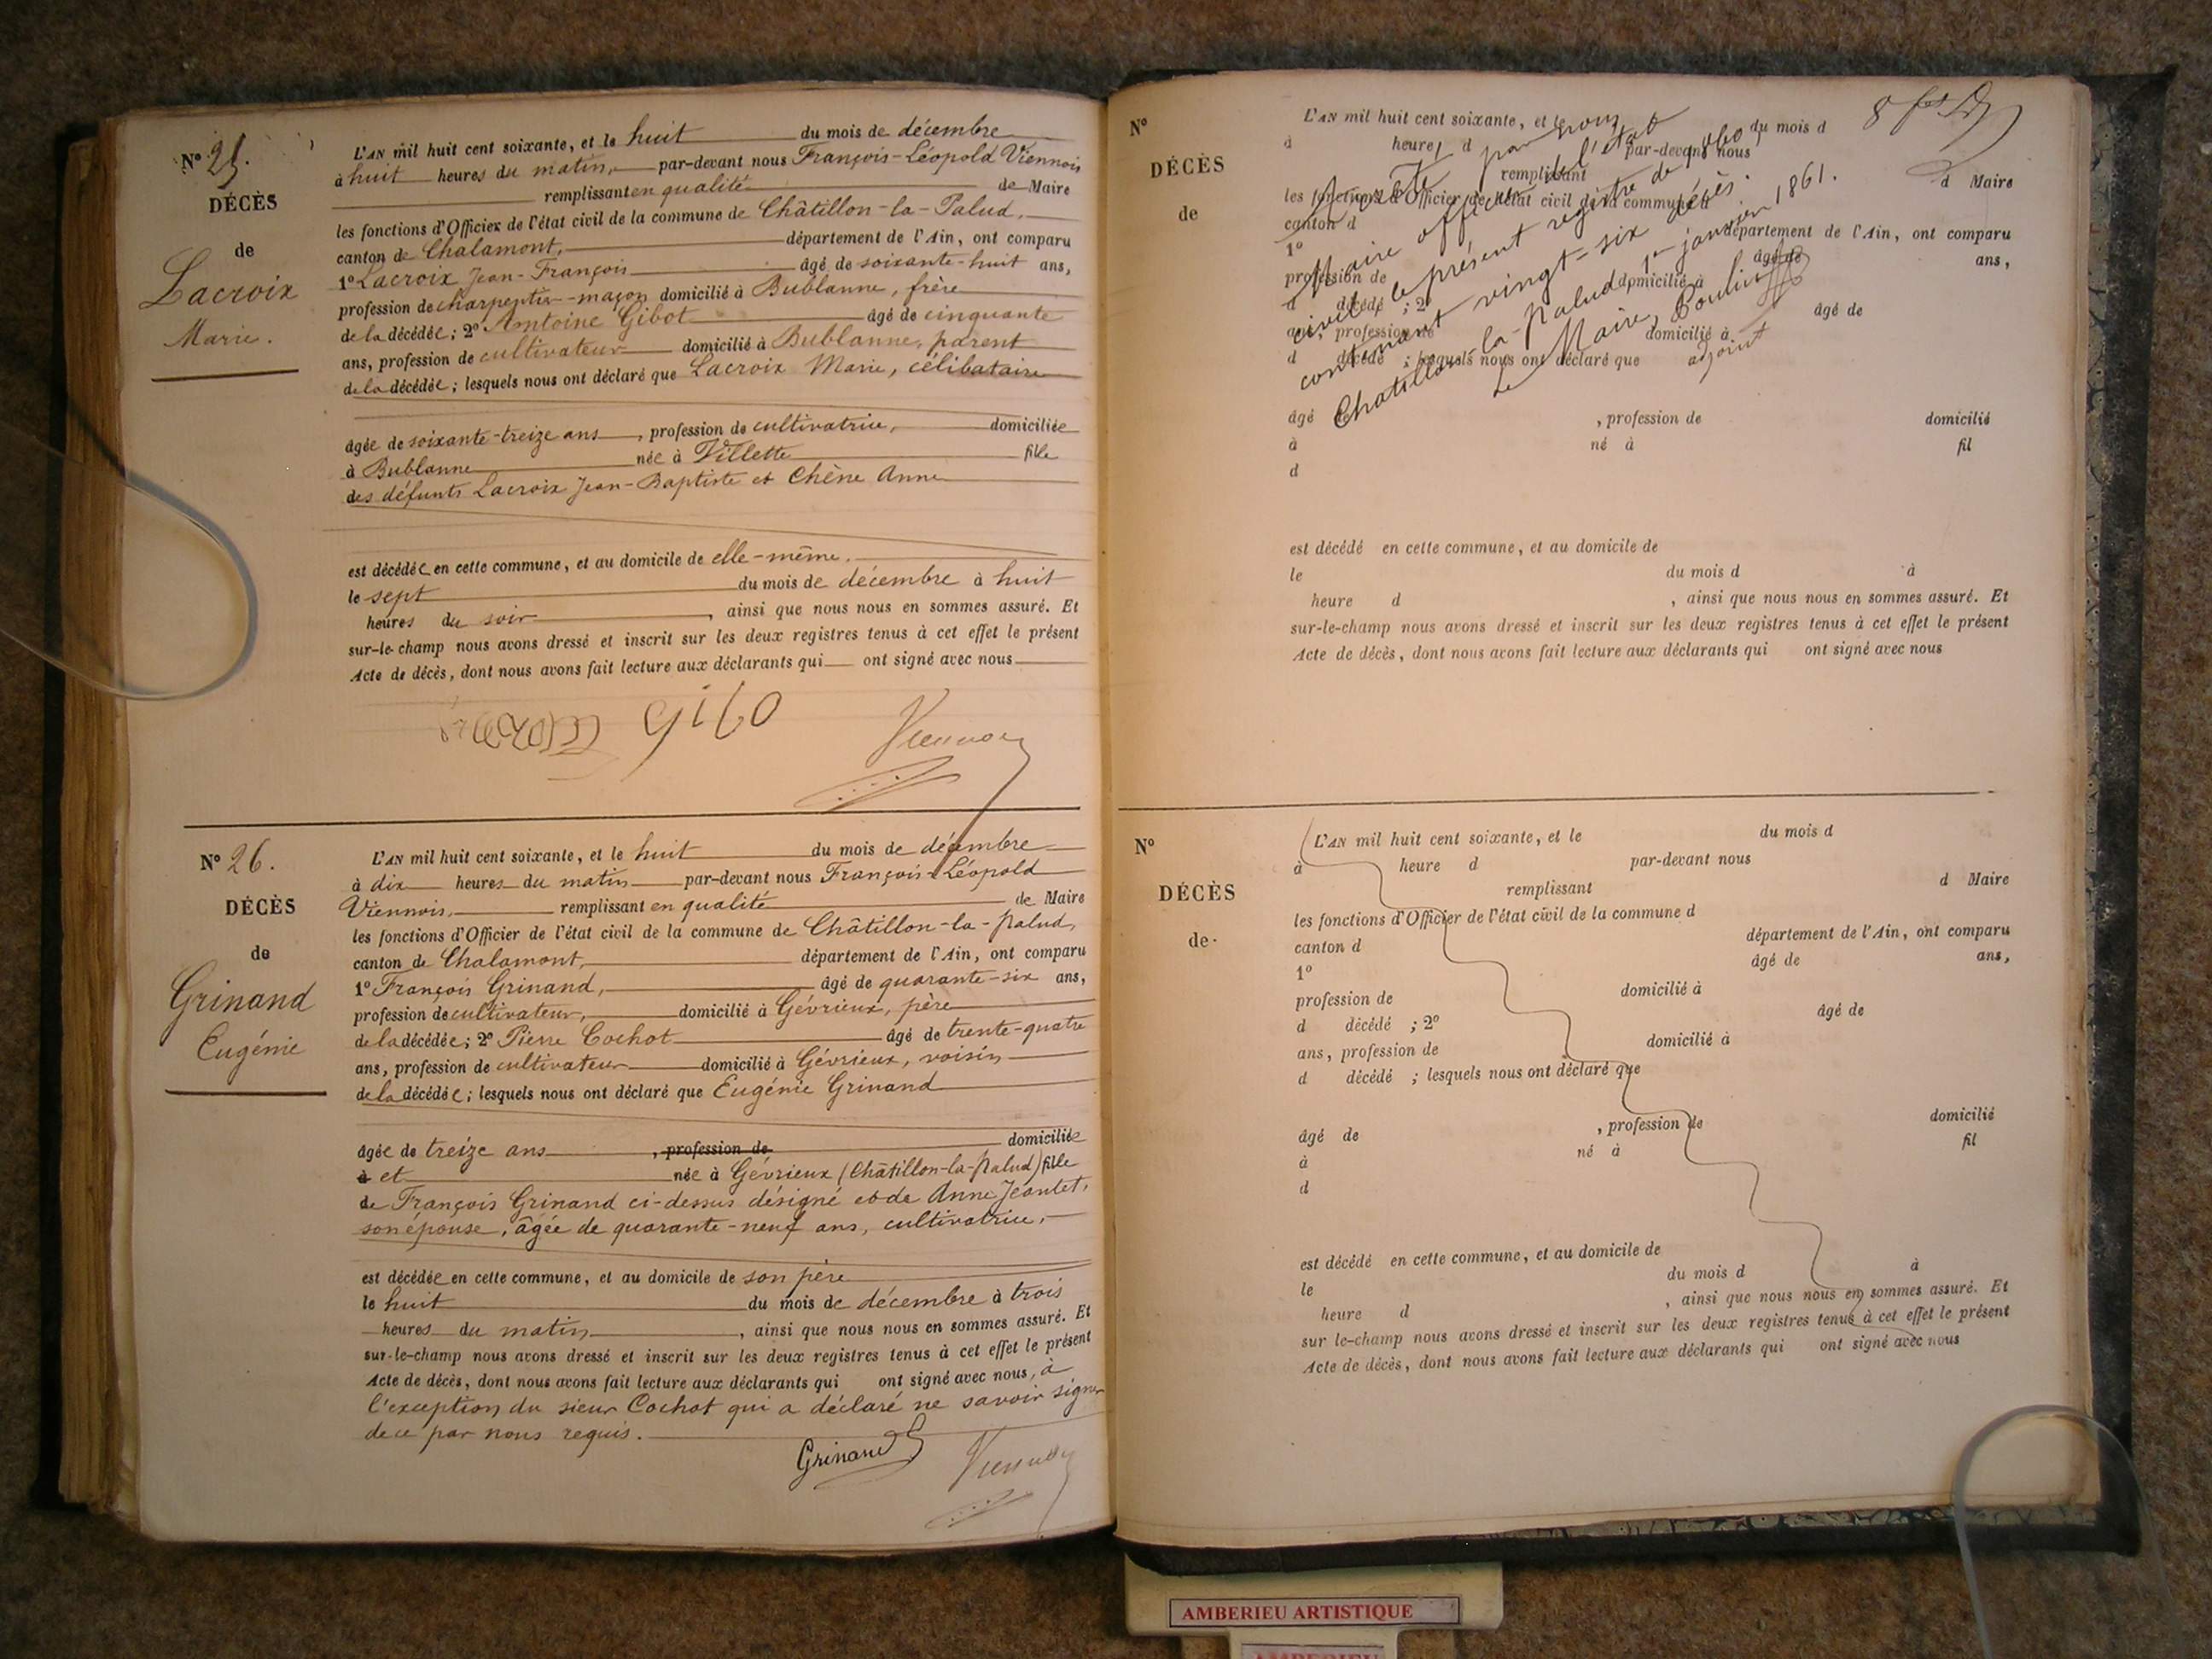 N° 25.
DÉCÈS
de
Lacroix
Marie.
L'AN mil huit cent soixante, et le huit du mois de décembre
à huit heures du matin, par-devant nous François-Léopold Viennois
remplissant en qualité de Maire
les fonctions d'Officier de l'état civil de la commune de Châtillon-la-Palud,
canton de Chalamont, département de l'Ain, ont comparu
1° Lacroix Jean-François âgé de soixante-huit ans,
profession de charpentier-maçon domicilié à Bublanne, frère
de la décédée ; 2° Antoine Gibot âgé de cinquante
ans, profession de cultivateur domicilié à Bublanne, parent
de la décédée ; lesquels nous ont déclaré que Lacroix Marie, célibataire
âgée de soixante-treize ans, profession de cultivatrice, domiciliée
à Bublanne née à Villette fille
des défunts Lacroix Jean-Baptiste et Chêne Anne
est décédée en cette commune, et au domicile de elle-même.
le sept du mois de décembre à huit
heures du soir, ainsi que nous nous en sommes assuré. Et
sur-le-champ nous avons dressé et inscrit sur les deux registres tenus à cet effet le présent
Acte de décès, dont nous avons fait lecture aux déclarants qui ont signé avec nous
Gibo
Viennois
N° 26.
DÉCÈS
de
Grinand
Eugénie
L'AN mil huit cent soixante, et le huit du mois de décembre
à dix heures du matin par-devant nous François-Léopold
Viennois, remplissant en qualité de Maire
les fonctions d'Officier de l'état civil de la commune de Châtillon-la-Palud,
canton de Chalamont, département de l'Ain, ont comparu
1° François Grinand, âgé de quarante-six ans,
profession de cultivateur, domicilié à Gévrieux, père
de la décédée ; 2° Pierre Cochot âgé de trente-quatre
ans, profession de cultivateur domicilié à Gévrieux, voisin
de la décédée ; lesquels nous ont déclaré que Eugénie Grinand
âgée de treize ans, profession de domiciliée
à et née à Gévrieux (Châtillon-la-Palud) fille
de François Grinand ci-dessus désigné et de Anne Jeantet,
son épouse, âgée de quarante-neuf ans, cultivatrice,
est décédée en cette commune, et au domicile de son père
le huit du mois de décembre à trois
heures du matin, ainsi que nous nous en sommes assuré. Et
sur-le-champ nous avons dressé et inscrit sur les deux registres tenus à cet effet le présent
Acte de décès, dont nous avons fait lecture aux déclarants qui ont signé avec nous, à
l'exception du sieur Cochot qui a déclaré ne savoir signer
de ce par nous requis.
Grinand Viennois
N°
DÉCÈS
de
L'AN mil huit cent soixante, et le du mois d
à heure d par-devant nous
remplissant d Maire
les fonctions d'Officier de l'état civil de la commune d
canton d département de l'Ain, ont comparu
1° âgé de ans,
profession de domicilié à
d décédé ; 2° âgé de
ans, profession de domicilié à
d décédé ; lesquels nous ont déclaré que
âgé de , profession de domicilié
à né à fil
d
est décédé en cette commune, et au domicile de
le du mois d à
heure d , ainsi que nous nous en sommes assuré. Et
sur-le-champ nous avons dressé et inscrit sur les deux registres tenus à cet effet le présent
Acte de décès, dont nous avons fait lecture aux déclarants qui ont signé avec nous
par nous
Maire officier de l'état
civil, le présent registre de 1860,
contenant vingt-six décès.
Châtillon-la-Palud, 1er janvier 1861.
Le Maire,
adjoint
N°
DÉCÈS
de
L'AN mil huit cent soixante, et le du mois d
à heure d par-devant nous
remplissant d Maire
les fonctions d'Officier de l'état civil de la commune d
canton d département de l'Ain, ont comparu
1° âgé de ans,
profession de domicilié à
d décédé ; 2° âgé de
ans, profession de domicilié à
d décédé ; lesquels nous ont déclaré que
âgé de , profession de domicilié
à né à fil
d
est décédé en cette commune, et au domicile de
le du mois d à
heure d , ainsi que nous nous en sommes assuré. Et
sur le-champ nous avons dressé et inscrit sur les deux registres tenus à cet effet le présent
Acte de décès, dont nous avons fait lecture aux déclarants qui ont signé avec nous
AMBERIEU ARTISTIQUE
AMBERIEU